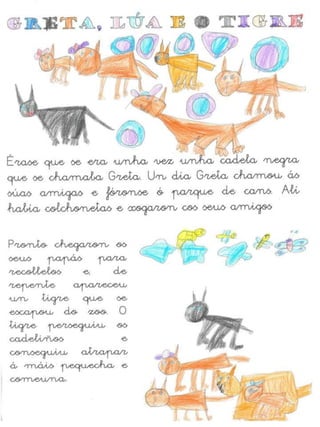 GRETA, LÚA E O TIGRE
Érase que se era unha vez unha cadela negra
que se chamaba Greta. Un dia Greta chamou ás
súas amigas e fóronse ó parque de cans. Alí
habia colchonetas e xogaron cos seus amigos
Pronto chegaron os
seus papás para
recollelos e, de
repente apareceu
un tigre que se
escapou do zoo. O
tigre perseguiu os
cadeliños e
conseguiu atrapar
á máis pequecha e
comeuna.